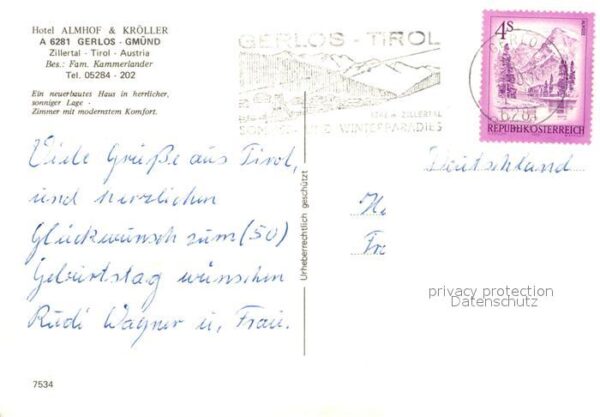 Hotel ALMHOF & KRÖLLER
A 6281 GERLOS - GMÜND
Zillertal - Tirol - Austria
Bes.: Fam. Kammerlander
Tel. 05284 - 202
Ein neuerbautes Haus in herrlicher,
sonniger Lage -
Zimmer mit modernstem Komfort.
GERLOS - TIROL
ZILLERTAL
SOMMER- UND WINTERPARADIES
GERLOS
6281
4S
REPUBLIK ÖSTERREICH
Viele Grüße aus Tirol,
und herzlichen
Glückwunsch zum (50)
Geburtstag wünschen
Rudi Wagner u. Frau.
Urheberrechtlich geschützt
Deutschland
He
Fr
privacy protection
Datenschutz
7534